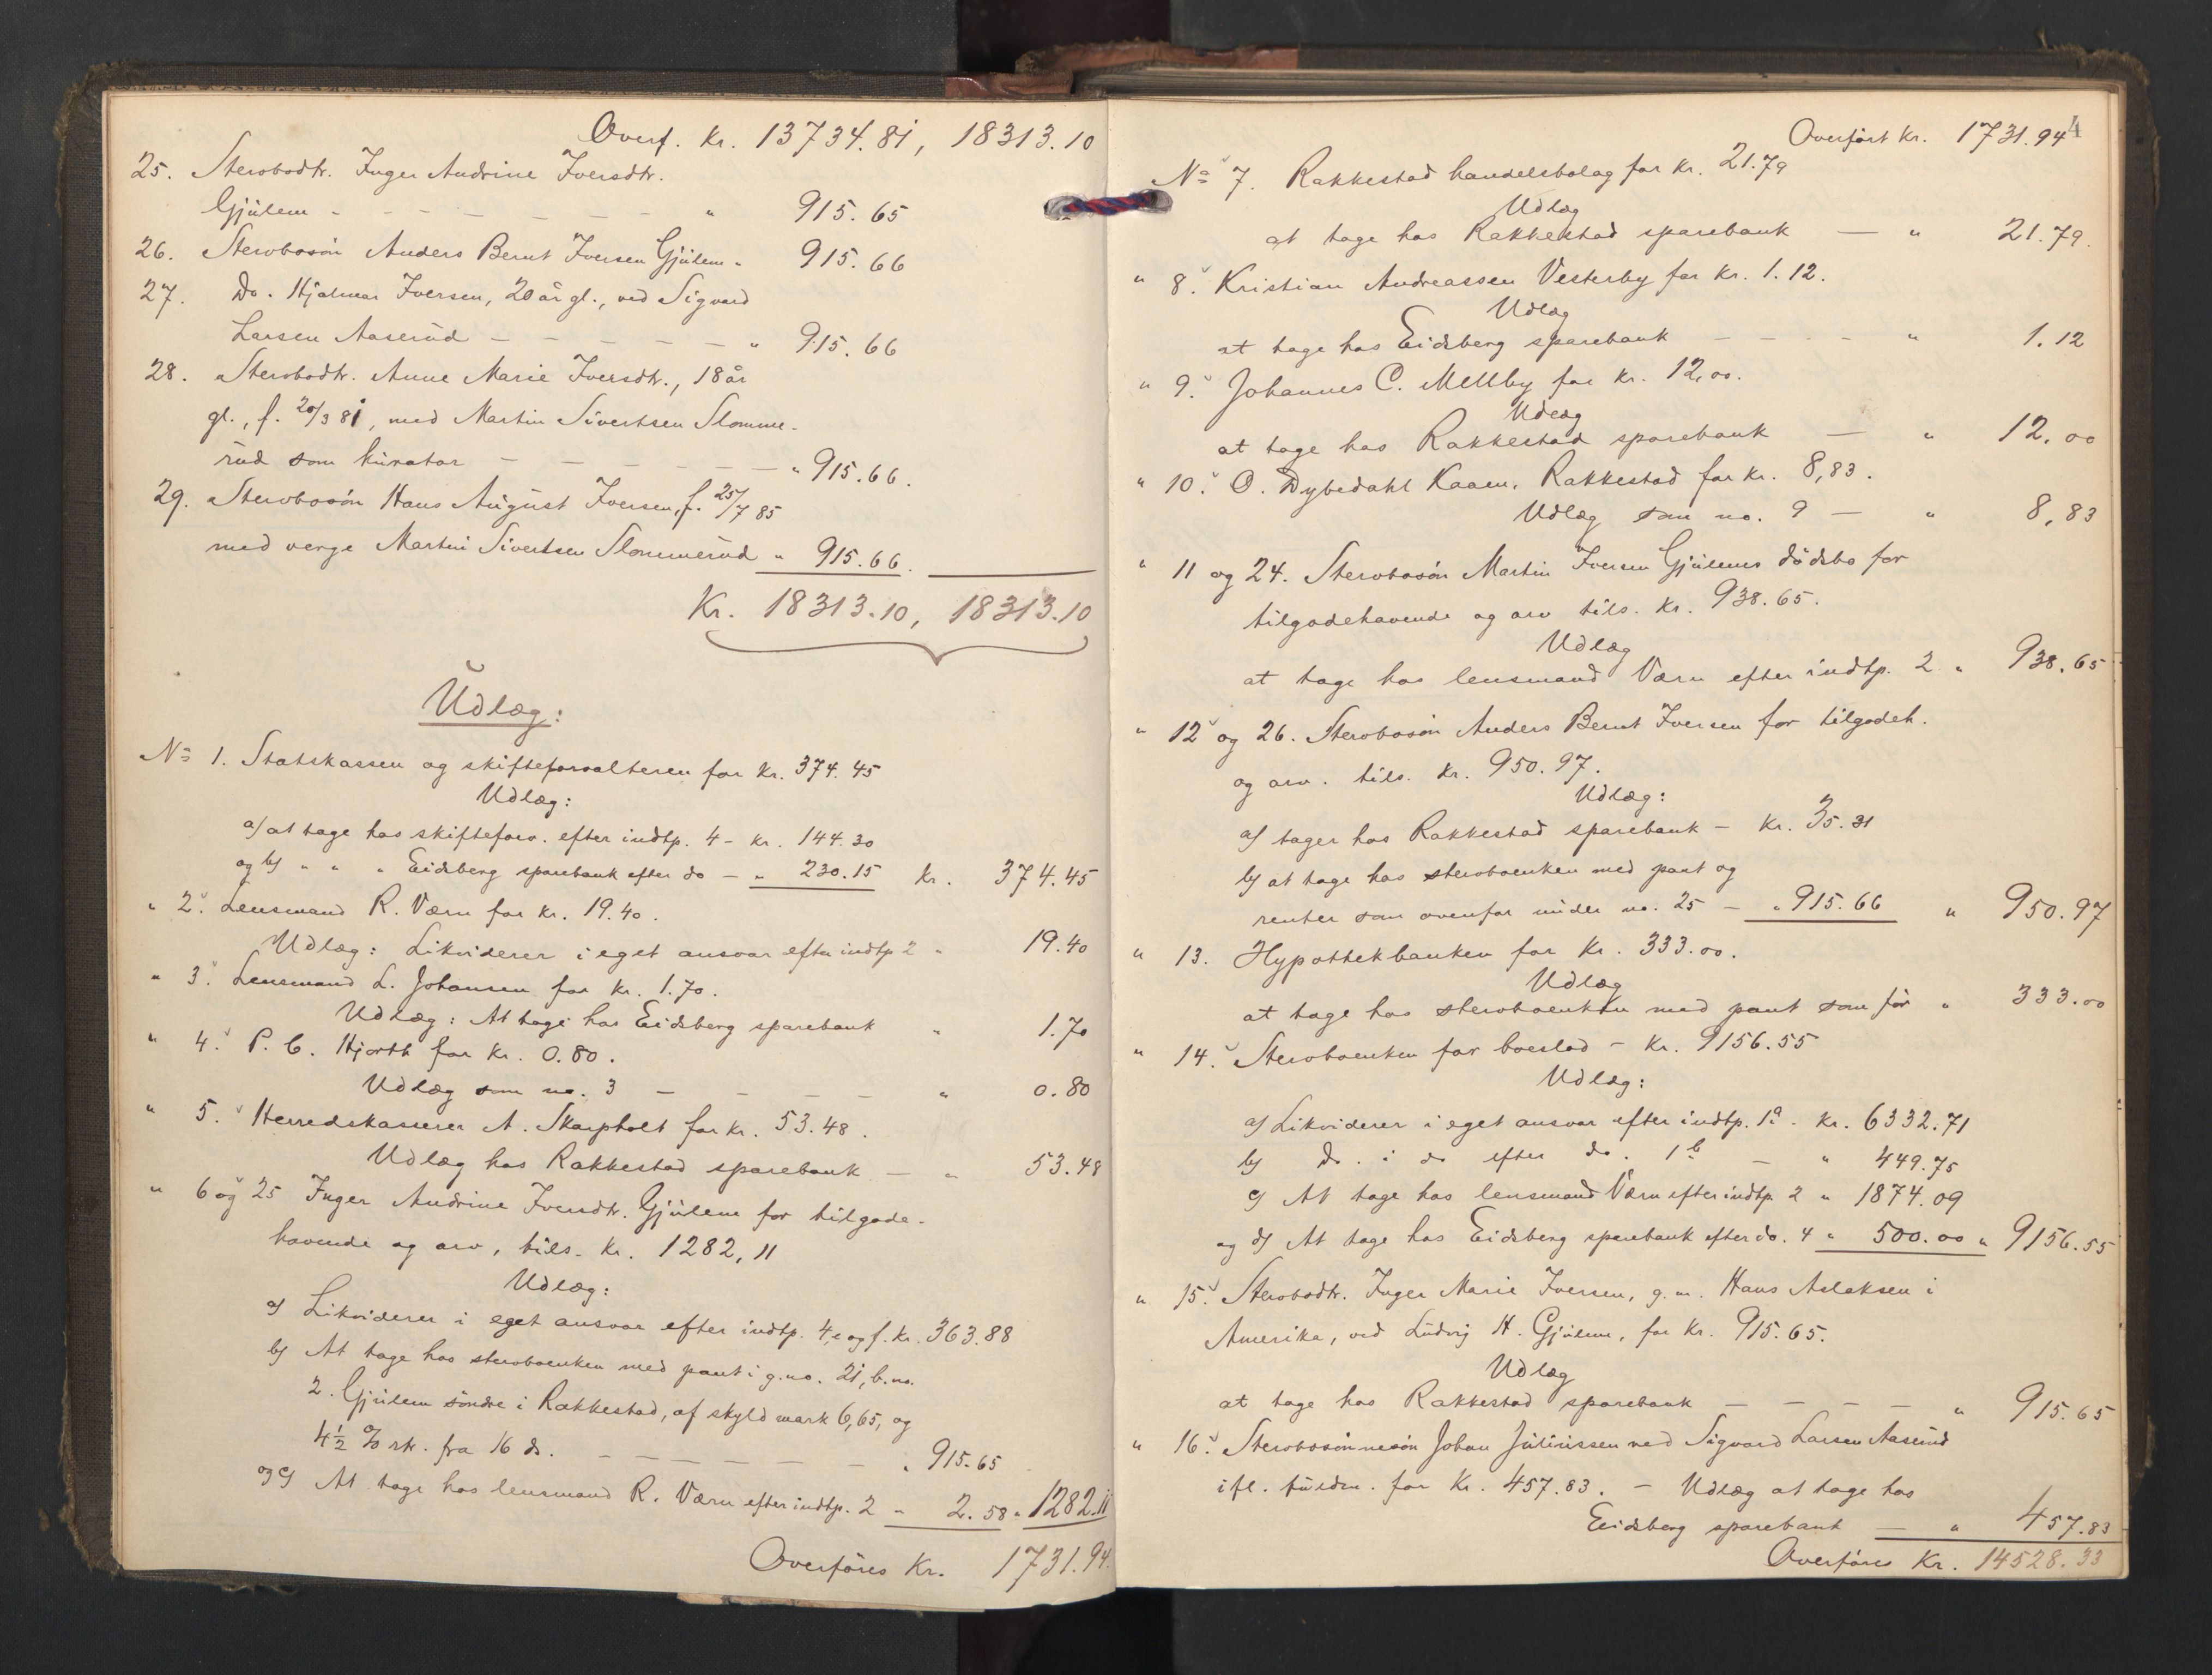 Overf. kr. 13734.81, 18313.10
25. Stervbodtr. Inger Andrine Iversdtr.
Gjülem - - - - - - - " 915.65
26. Stervbosön Anders Bernt Iversen Gjülem " 915.66
27. Do. Hjalmar Iversen, 20 år gl., ved Sigvard
Larsen Aaserüd - - - - - - " 915.66
28. Stervbodtr. Anne Marie Iversdtr., 18 år
gl., f. 20/3 81, med Martin Sivertsen Slomme-
rüd som kürator - - - - - - " 915.66.
29. Stervbosön Hans Augüst Iversen, f. 25/7 85
med verge Martin Sivertsen Slommerüd " 915.66.
Kr. 18313.10, 18313.10
Udlæg:
No 1. Statskassen og skifteforvalteren for kr. 374.45
Udlæg:
a) at tage hos skifteforv. efter indtp. 4 - kr. 144.30
og b) " " " Eidsberg sparebank efter do - " 230.15 kr. 374.45
" 2. Lensmand R. Værn for kr. 19.40.
Udlæg: Likviderer i eget ansvar efter indtp 2 " 19.40
" 3. Lensmand L. Johansen for kr. 1.70.
Udlæg: At tage hos Eidsberg sparebank " 1.70
" 4. P. C. Hjorth for kr. 0.80.
Udlæg som no. 3 - - - - " 0.80
" 5. Herredskasserer A. Skarpholt for kr. 53.48.
Udlæg hos Rakkestad sparebank - " 53.48
" 6 og 25 Inger Andrine Iversdtr. Gjülem for tilgode-
havende og arv, tils. kr. 1282,11
Udlæg:
a) Likviderer i eget ansvar efter indtp. 4, e og f. kr. 363.88
b) At tage hos stervboenken med pant i g.no. 21, b.no.
2. Gjülem söndre i Rakkestad, af skyld mark 6,65, og
4½ % rtr. fra 16 ds. - - - - - - - " 915.65
og c) At tage hos lensmand R. Værn efter indtp. 2 - 2.58 " 1282.11
Overföres kr. 1731.94.
4
Overfört kr. 1731.94
No 7. Rakkestad handelsbolag for kr. 21.79
Udlæg
at tage hos Rakkestad sparebank — " 21.79.
" 8. Kristian Andreassen Vesterby for kr. 1.12.
Udlæg
at tage hos Eidsberg sparebank - - - - " 1.12
" 9. Johannes C. Mellby for kr. 12,00.
Udlæg
at tage hos Rakkestad sparebank — " 12.00
" 10. O. Dybedahl Kaasen, Rakkestad for kr. 8,83.
Udlæg som no. 9 — " 8,83
" 11 og 24. Stervbosön Martin Iversen Gjülems dödsbo for
tilgodehavende og arv tils. kr. 938.65.
Udlæg
at tage hos lensmand Værn efter indtp. 2 " 938.65
" 12 og 26. Stervbosön Anders Bernt Iversen for tilgodeh.
og arv. tils. kr. 950.97.
Udlæg:
a) tager hos Rakkestad sparebank - kr. 35.31
b) at tage hos stervboenken med pant og
renter som ovenfor ünder no. 25 - " 915.66 " 950.97
" 13. Hypothekbanken for kr. 333.00.
Udlæg
at tage hos stervboenken med pant som för " 333.00
" 14. Stervboenken for boeslod - kr. 9156.55
Udlæg:
a) Likviderer i eget ansvar efter indtp. 1a. kr. 6332.71
b) do. i do efter do. 1b — " 449.75
c) At tage hos lensmand Værn efter indtp. 2 " 1874.09
og d) At tage hos Eidsberg sparebank efter do. 4 " 500.00 " 9156.55
" 15. Stervbodtr. Inger Marie Iversen, g. m. Hans Aslaksen i
Amerika, ved Lüdvig H. Gjülem, for kr. 915.65.
Udlæg
at tage hos Rakkestad sparebank - - - - " 915.65
" 16. Stervbosönnesön Johan Jüliüssen ved Sigvard Larsen Aaserüd
ifl. füldm. for kr. 457.83. - Udlæg at tage hos
Eidsberg sparebank — " 457.83
Overföres kr. 14528.33